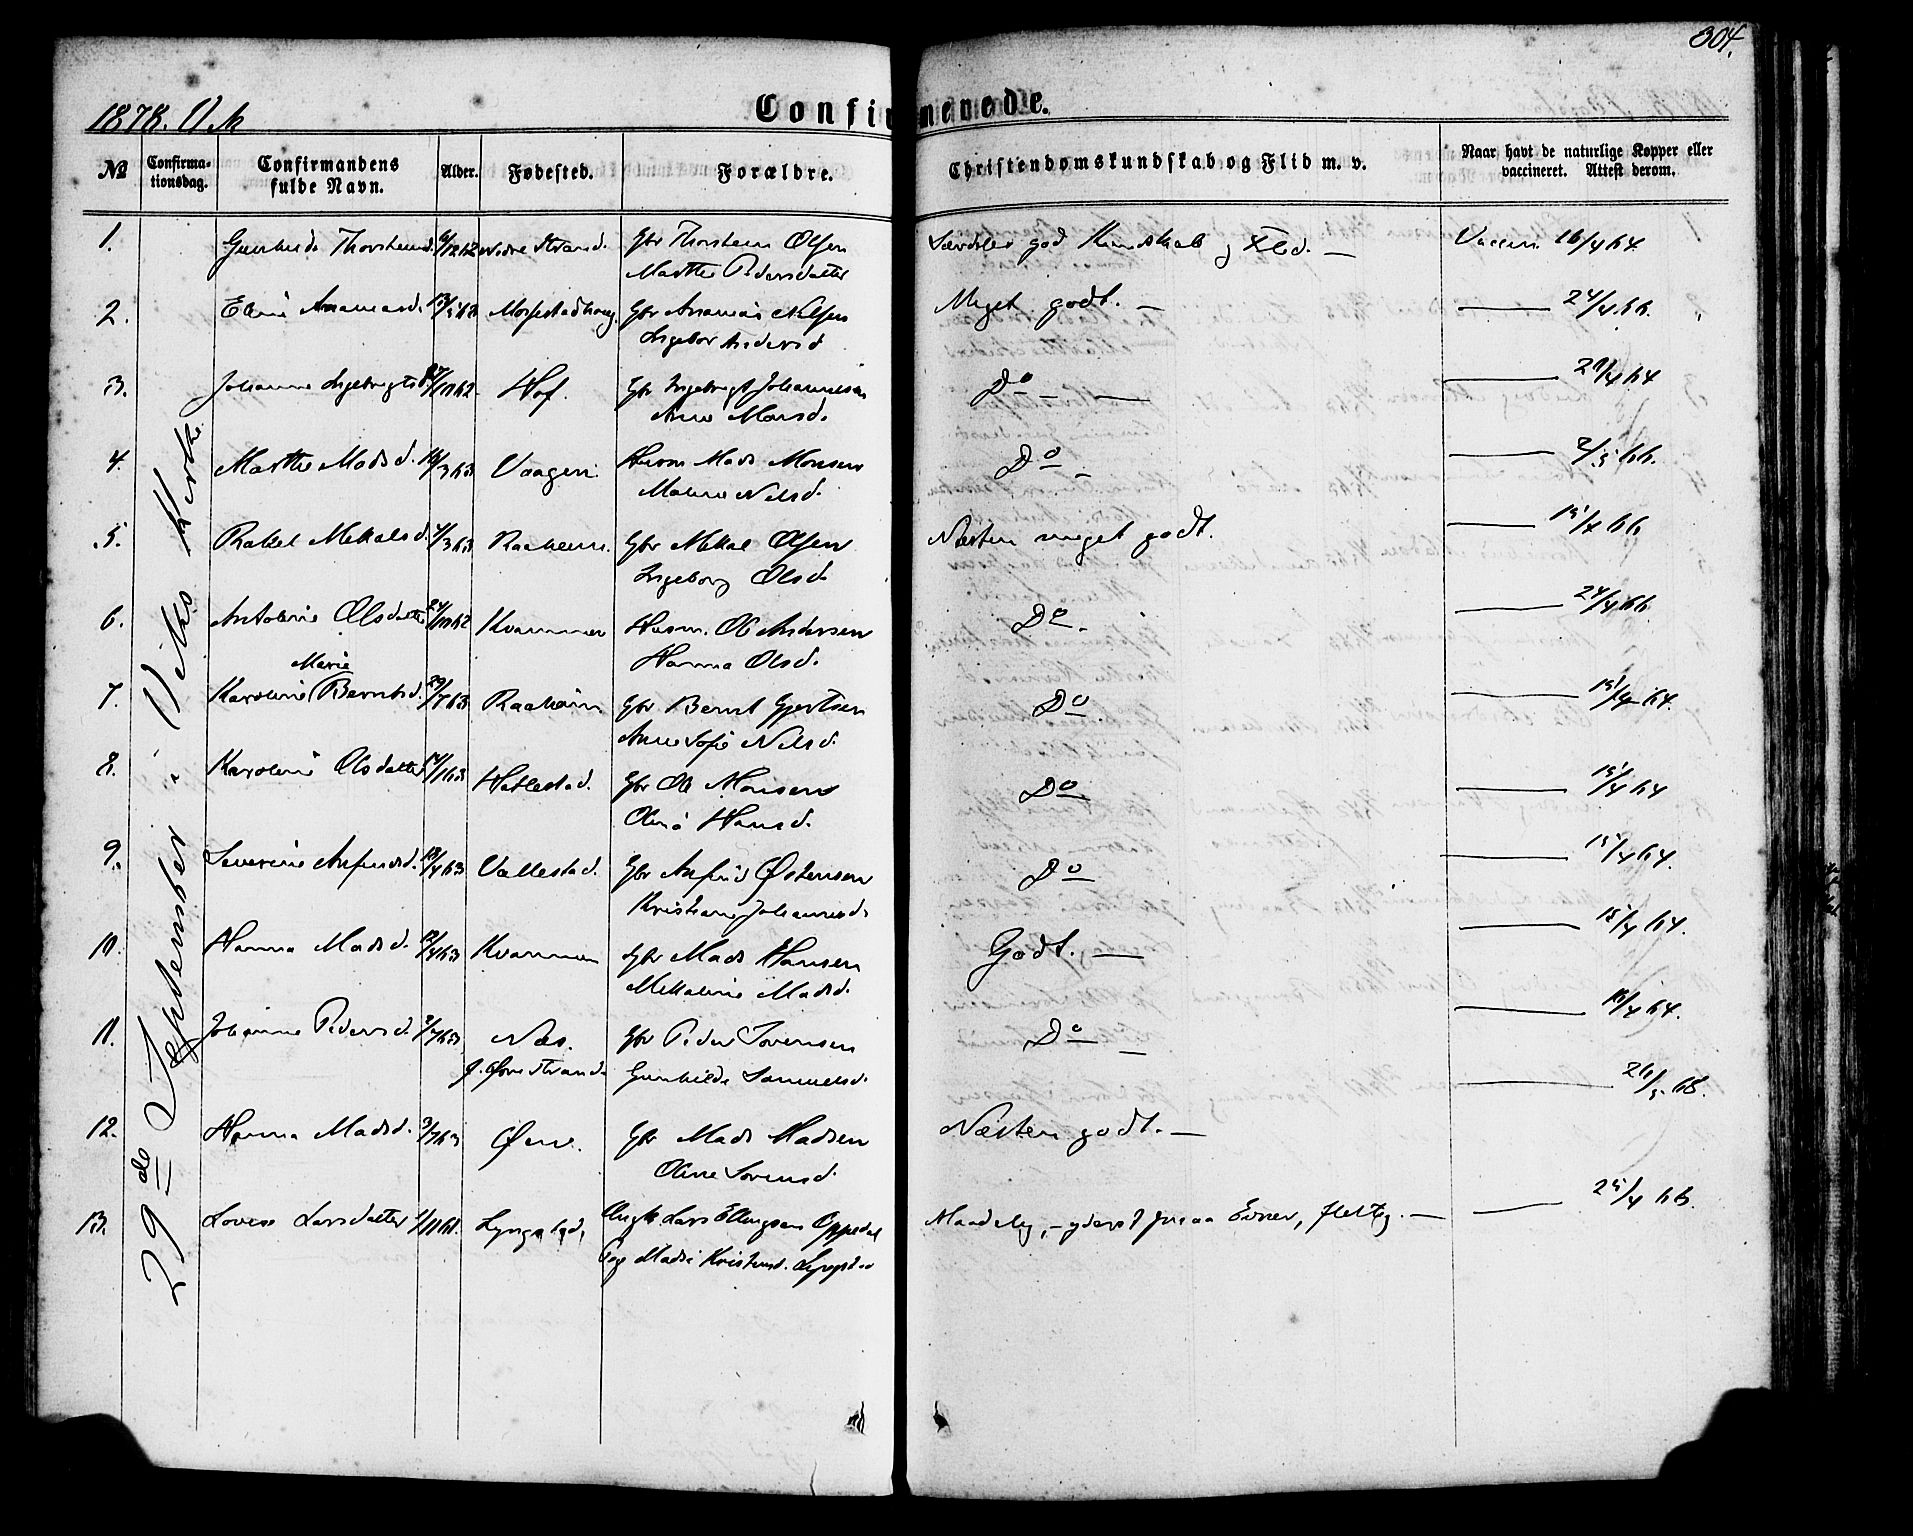 304.
1878. V.k
Confirmerede.
№ Confirma-tionsdag. Confirmandens fulde Navn. Alder. Fødested. Forældre. Christendomskundskab og Flid m. v. Naar havt de naturlige Kopper eller vaccineret. Attest derom.
29de September i Viks Kirke
1. Gunhilde Thorsteinsd. 6/12 62 Nedre Strand. Gbr Thorstein Olsen Særdeles god Kundskab og Flid. — Vaccin. 16/4 64
Marthe Pedersdatter
2. Eline Ananiasd. Gbr Ananias Nilsen Meget godt. — — 24/4 66.
Ingebor Andersd
3. Johanne Ingebrigtsd. 27/10 62 Hof. Gbr Ingebrigt Johannesen Do — — 29/4 64
Anne Monsd.
4. Marthe Madsd. 16/3 63 Vaagen Husm Mads Monsen Do — — 2/5 66.
Malene Nelsd.
5. Rakel Mikkalsd. 4/3 63 Raaheim. Gbr Mikkal Olsen Næsten meget godt. — 15/4 66
Ingeborg Olsd.
6. Antoline Olsdatter 24/10 62 Kvammen Husm. Ole Andersen Do. — 24/4 66
Hanna Olsd.
Marie
7. Karoline Berntsd. 29/7 63 Raaheim Gbr Bernt Gjertsen Do. — 15/4 64.
Anne Sofie Nelsd.
8. Karoline Olsdatter 14/1 63 Hatlestad. Gbr Ole Monsen Do — 15/4 64
Oline Hansd.
9. Severine Anfindsd. 18/4 63 Vallestad. Gbr Anfind Østensen Do — 15/4 64.
Kristiane Johannesd.
10. Hanna Madsd. 12/4 63 Kvammen Gbr Mads Hansen Godt. — — 15/4 64.
Mikkaline Madsd.
11. Johanne Pedersd. 2/7 63 Næs. Gbr Peder Sørensen Do — — 16/4 64.
Gunhilde Samuelsd.
12. Hanna Madsd. 3/7 63 Øen. Gbr Mads Madsen Næsten godt. — — 26/5 68.
Oline Sørensd.
13. Lovise Larsdatter 1/11 61. Lyngstad. Ungk Lars Ellingsen Oppedal Maadelig, – yderst smaa Evner, flittig. — — 25/4 66.
Pige Madsi Kristensd. Lyngstad